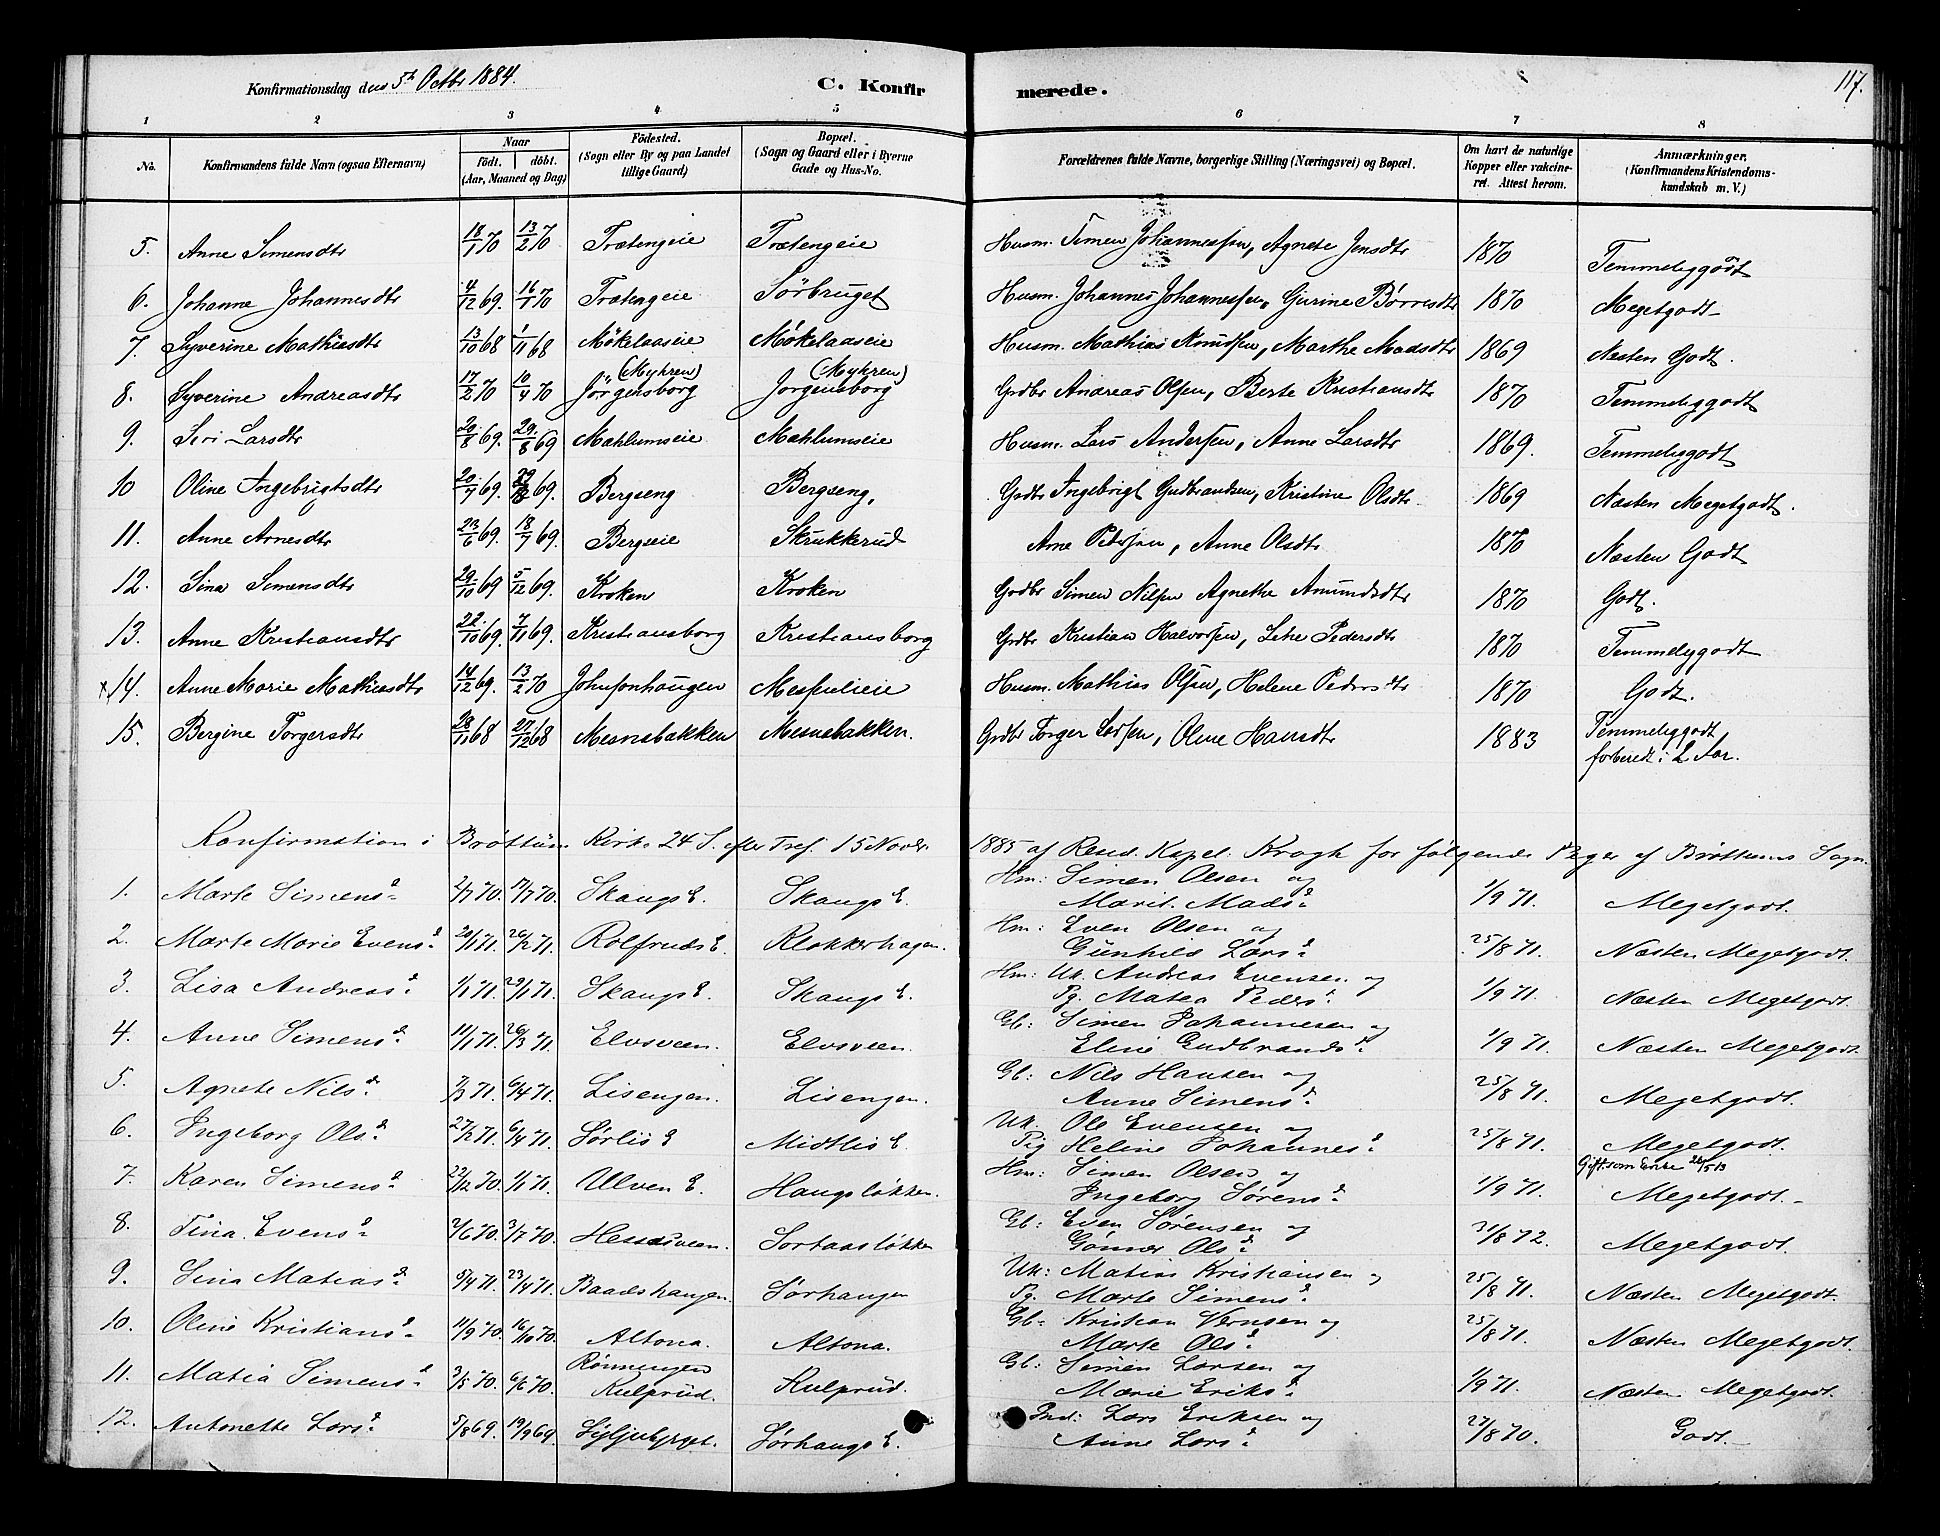 117.
Konfirmationsdag den 5te Octbr 1884. C. Konfirmerede.
1 2 3 4 5 6 7 8
No. Konfirmandens fulde Navn (ogsaa Efternavn) Naar födt. döbt. (Aar, Maaned og Dag) Födested. (Sogn eller By og paa Landet tillige Gaard) Bopæl. (Sogn og Gaard eller i Byerne Gade og Hus-No. Forældrenes fulde Navne, borgerlige Stilling (Næringsvei) og Bopæl. Om havt de naturlige Kopper eller vakcineret. Attest herom. Anmærkninger. (Konfirmandens Kristendomskundskab m. V.)
5. Anne Simensdtr 18/1 70 13/2 70 Trætengeie Trætengeie Husm. Simen Johannessen, Agnete Jensdtr 1870 Temmeliggodt
6. Johanne Johannesdtr 4/12 69. 16/1 70 Trætengeie Sörbruget Husm. Johannes Johannessen, Gurine Börresdtr 1870 Megetgodt
7. Syverine Mathiasdtr 13/10 68 1/11 68 Mökelaaseie Mökelaaseie Husm. Mathias Knudsen, Marthe Madsdtr 1869 Næsten Godt.
8. Syverine Andreasdtr 17/2 70 10/4 70 (Myhren) Jörgensborg (Myhren) Jorgensborg Grdbr Andreas Olsen, Berte Kristiansdtr 1870 Temmeliggodt
9. Siri Larsdtr 20/8 69. 29/8 69 Mahlumseie Mahlumseie Husm. Lars Andersen, Anne Larsdtr 1869. Temmeliggodt
10 Oline Ingebrigtsdtr 20/7 69. 69. Bergseng Bergseng, Grdbr Ingebrigt Gudbrandsen, Kristine Olsdtr 1869 Næsten Megetgodt.
11. Anne Arnesdtr 23/6 69. 18/7 69. Bergseie Skrukkerud Arne Pedersen, Anne Olsdtr 1870 Næsten Godt
12. Sina Simensdtr 29/10 69 5/12 69. Kroken Kroken Grdbr Simen Nilsen Agnethe Amundsdtr 1870 Godt.
13. Anne Kristiansdtr 22/10 69. 7/11 69. Kristiansborg Kristiansborg Grdbr Kristian Halvorsen, Lene Pedersdtr 1870 Temmeliggodt
x14. Anne Marie Mathiasdtr 14/12 69. 13/2 70 Johnsonhaugen Mesnelieie Husm. Mathias Olsen, Helene Pedersdtr 1870 Godt.
15. Bergine Torgersdtr 28/11 68 27/12 68 Mesnabakken Mesnabakken. Grdbr Torger Larsen, Oline Hansdtr 1883 Temmeliggodt
forberedt i 2 Aar.
Konfirmation i Brøttum Kirke 24 S. efter Tref. 15 Novbr. 1885 af Resid. Kapel. Krogh for følgende Piger af Brøttums Sogn
1. Marte Simensd. 2/7 70. 17/7 70. Skaugs E. Skaugs E. Hm: Simen Olsen og
Marit Madsd. 1/9 71. Megetgodt.
2. Marte Marie Evensd. 20/1 71. 26/2 71. Rolfruds E. Klokkerhagen. Hm: Even Olsen og
Gunhild Larsd. 25/8 71. Næsten Megetgodt.
3. Lisa Andreasd. 1/1 71. 29/1 71. Skaugs E. Skaugs E. Hm: Uk. Andreas Evensen og
Pg. Matea Pedersd. 1/9 71. Næsten Megetgodt.
4. Anne Simensd. 11/1 71. 26/3 71. Elvsveen. Elvsveen. Gb: Simen Johannesen og
Eline Gudbrandsd. 1/9 71. Næsten Megetgodt.
5. Agnete Nilsd. 7/3 71. 6/4 71. Lisengen. Lisengen. Gb: Nils Hansen og
Anne Simensd. 25/8 71. Megetgodt.
6. Ingeborg Olsd. 27/2 71. 6/4 71. Sørlis E Midtlis E. Uk. Ole Evensen og
Pig Heline Johannesd. 25/8 71. Megetgodt.
7. Karen Simensd. 22/12 70. 1/1 71. Ulven E. Haugsløkken. Hm: Simen Olsen og
Ingeborg Sørensd. 1/9 71. Gift som Enke 26/5 13 Megetgodt.
8. Tina Evensd. 2/6 70. 3/7 70. Hessveen. Sortaasløkken Gb: Even Sørensen og
Gønner Olsd. 31/8 72. Megetgodt.
9. Sina Matiasd. 5/4 71. 23/4 71. Baadshaugen. Sørhaugen Uk: Matias Kristiansen og
Pg. Marte Simensd. 25/8 71. Næsten Megetgodt.
10. Oline Kristiansd. 11/9 70. 16/10 70. Altona. Altona. Gb: Kristian Vernsen og
Marte Olsd. 25/8 71. Næsten Megetgodt.
11. Matia Simensd. 3/5 70. 6/6 70. Rønningen Kulprud. Kulprud. Gb: Simen Larsen og
Marie Eriksd. 1/9 71. Næsten Megetgodt.
12. Antonette Larsd. 5/8 69. 19/9 69. Syljuberget. Sørhaugs E. Ind: Lars Eriksen og
Anne Larsd. 27/8 70. Godt.